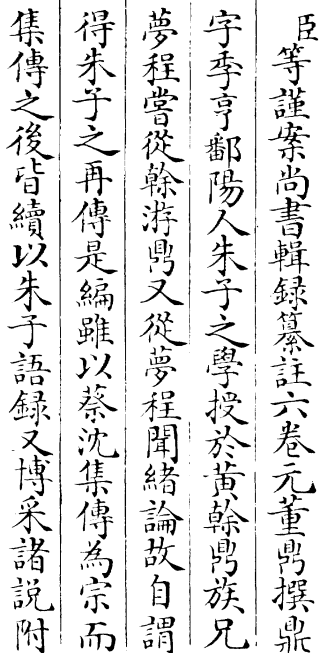 臣等謹案尚書輯録纂註六卷元董鼎撰鼎
字季亨鄱陽人朱子之學授於黃榦鼎族兄
夢程嘗從榦游鼎又從夢程聞緒論故自謂
得朱子之再傳是編雖以蔡沈集傳為宗而
集傳之後皆續以朱子語録又博采諸說附